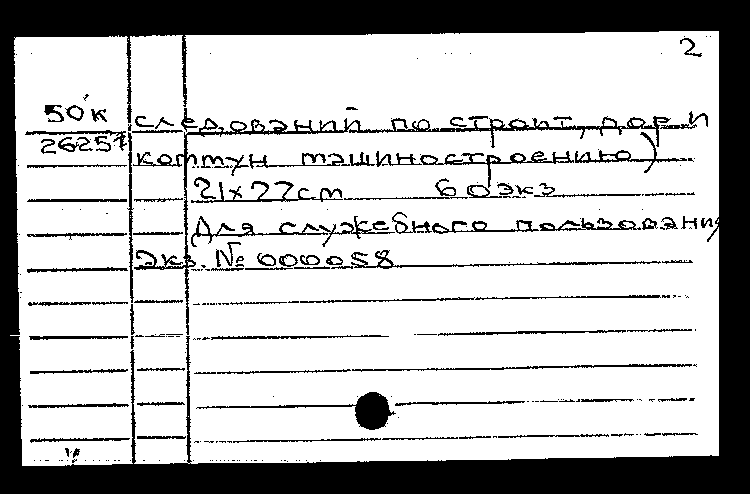 2
50к следований по строит, дор и
26251 коммун машиностроению)
21х27см 60экз
Для служебного пользования
Экз. № 000058